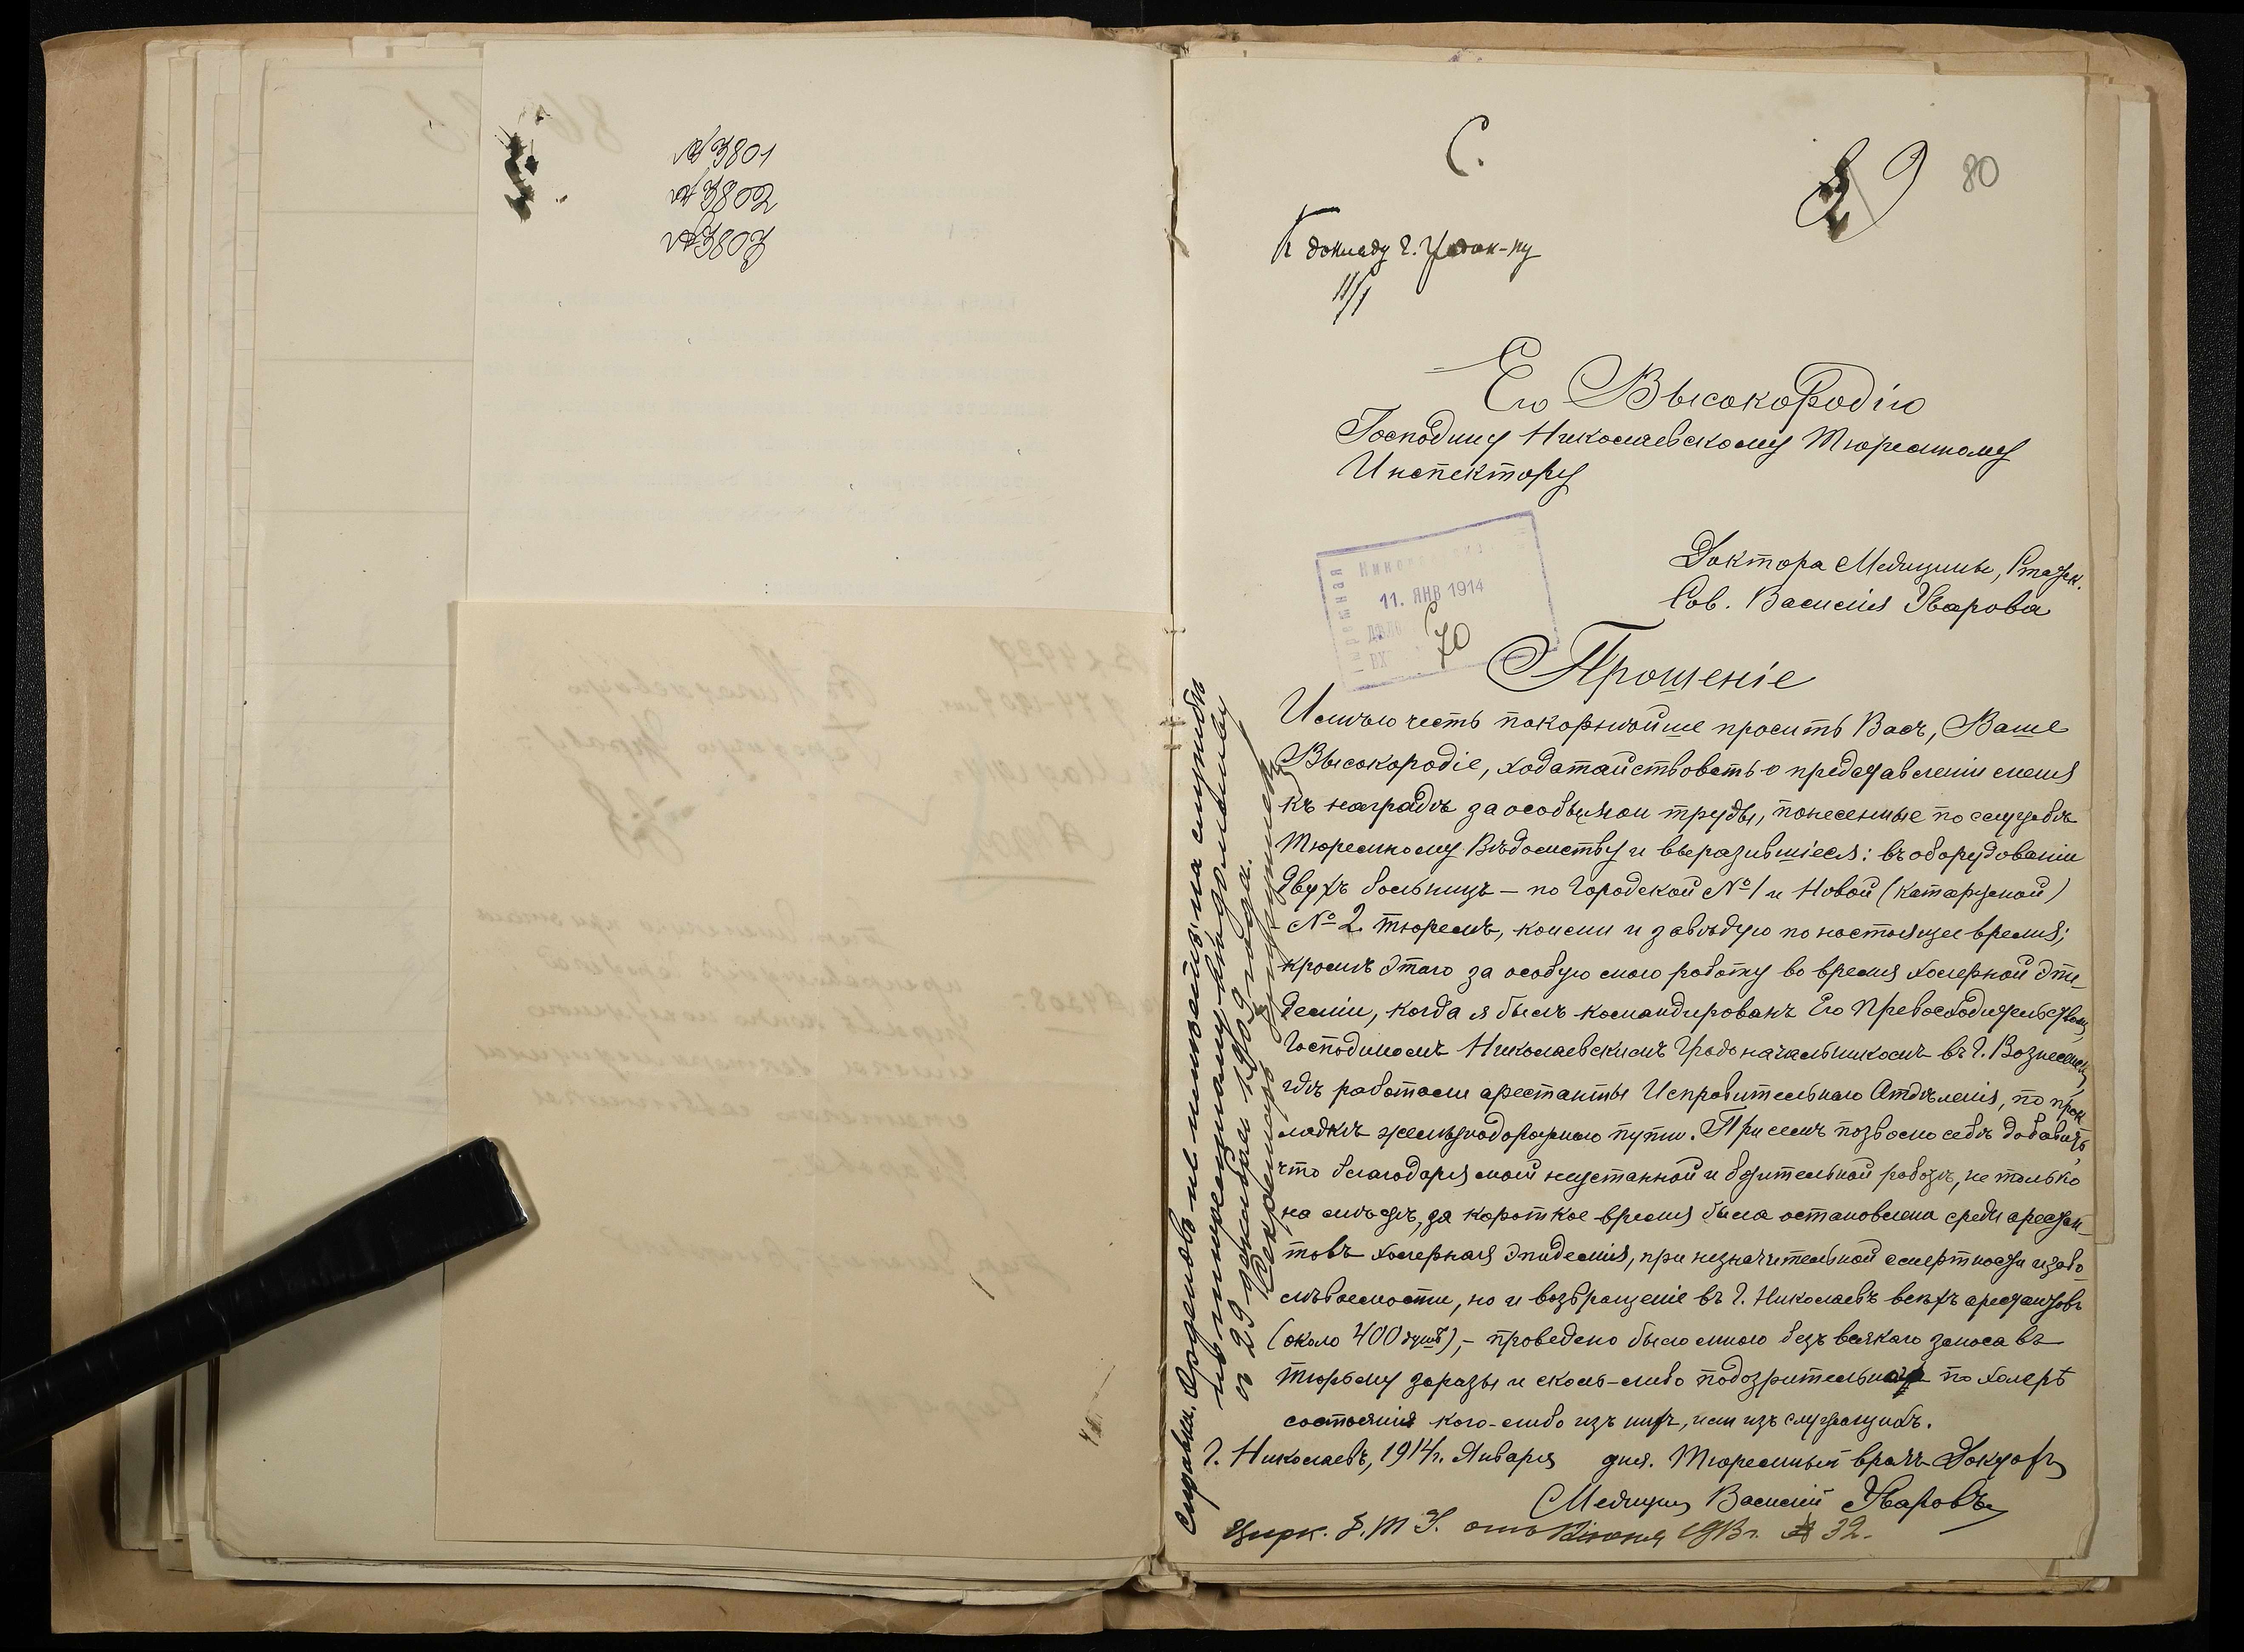 С.
89 80
К докладу г. Градон-ку
11/I
Его Высокородію
Господину Николаевскому Тюремному
Инспектору
Доктора Медицины, Статск.
Сов. Василія Уварова
11. ЯНВ 1914
70
Прошеніе
Имѣю честь покорнѣйше просить Васъ, Ваше
Высокородіе, ходатайствовать о представленіи меня
къ наградѣ за особые мои труды, понесенные по службѣ
Тюремному Вѣдомству и выразившіеся: въ оборудованіи
двухъ больницъ – по Городской № 1 и Новой (каторжной)
№ 2 тюремъ, коими и завѣдую по настоящее время;
кромѣ этого за особую мою работу во время холерной эпи-
деміи, когда я былъ командированъ Его Превосходительствомъ,
Господиномъ Николаевскимъ Градоначальникомъ въ г. Вознесенскъ,
гдѣ работали арестанты Исправительнаго Отдѣленія, по прок-
ладкѣ желѣзнодорожнаго пути. При семъ позволю себѣ добавить,
что благодаря моей неустанной и бдительной работѣ, не только
на мѣстѣ, за короткое время была остановлена среди арестан-
товъ холерная эпидемія, при незначительной смертности и забо-
лѣваемости, но и возвращеніе въ г. Николаевъ всѣхъ арестантовъ
(около 400 душъ), – проведено было мною безъ всякаго заноса въ
тюрьму заразы и сколь-либо подозрительнаго по холерѣ
состоянія кого-либо изъ нихъ, или изъ служащихъ.
Г. Николаевъ, 1914 г. Января дня. Тюремный врачъ Докторъ
Медицины Василій Уваровъ
Цирк. Г.Т.У. отъ іюня 1913 г. № 32.
Справка. Орденовъ не имѣетъ; на службѣ
по тюремному вѣдомству
съ 29 декабря 1909 года.
Секретарь